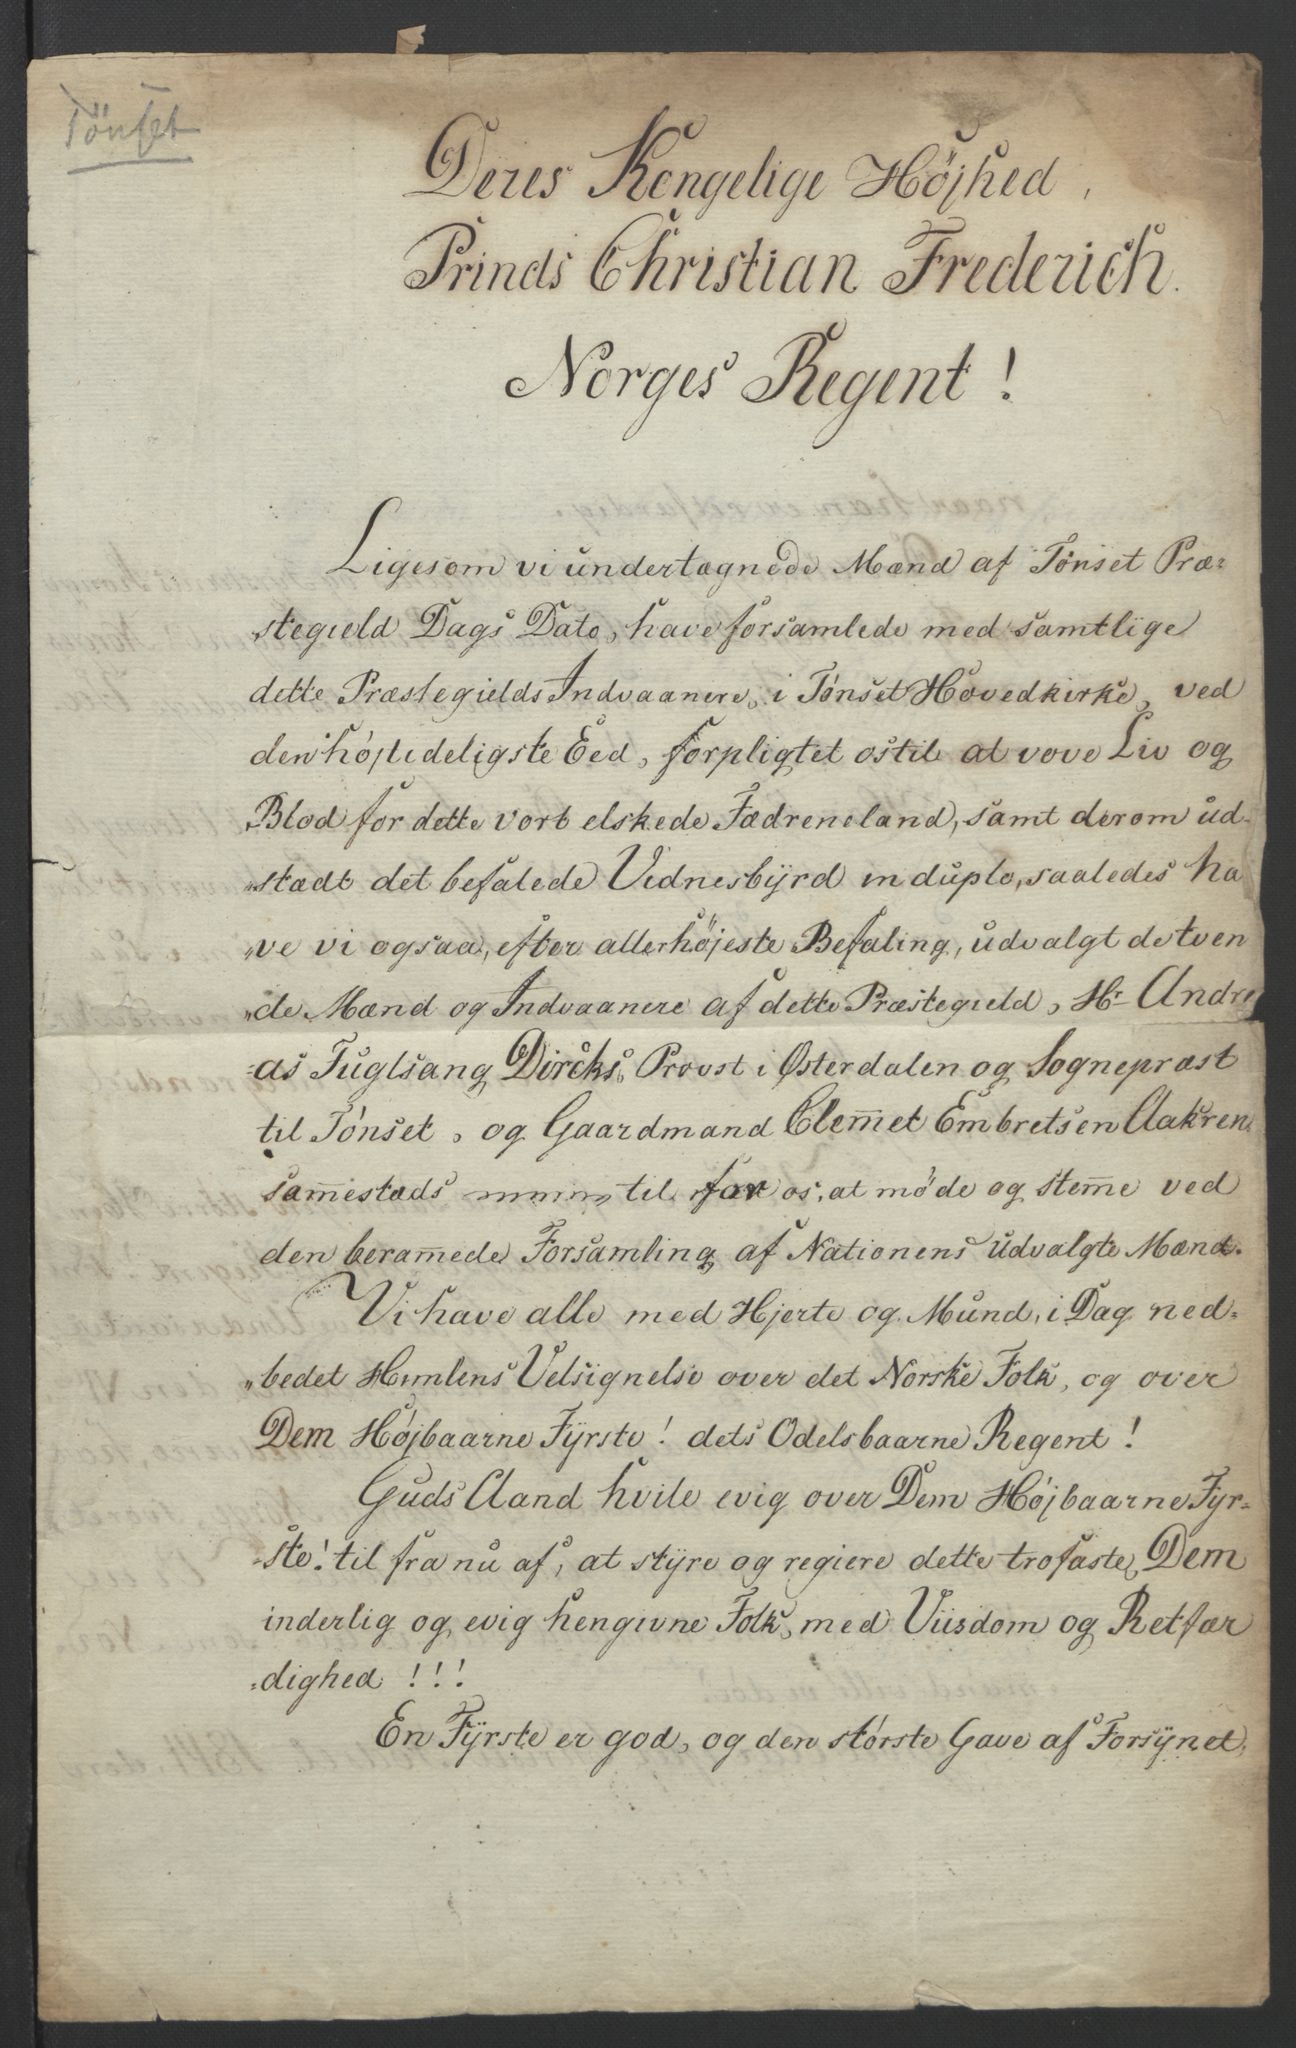 Tönset
Deres Kongelige Højhed,
Prinds Christian Frederich.
Norges Regent!
Ligesom vi undertegnede Mænd af Tönset Præ-
stegield Dags Dato, have forsamlede med samtlige
dette Præstegields Indvaanere, i Tönset Hovedkirke, ved
den højtideligste Eed, forpligtet os til at vove Liv og
Blod for dette vort elskede Fædreneland, samt derom ud-
„stædt det befalede Vidnesbÿrd in duplo, saaledes ha
„ve vi ogsaa, efter allerhøjeste Befaling, udvalgt de tven
„de Mænd og Indvaanere af dette Præstegield, Hr. Andre
=as Fuglsang Dircks, Provst i Østerdalen og Sognepræst
til Tönset, og Gaardmand Clem̅et Embretsen Aakren
sam̅estads til for os, at møde og stem̅e ved
den beram̅ede Forsamling af Nationens Udvalgte Mænd.
Vi have alle med Hjerte og Mund, i Dag ned-
„bedet Himlens Velsignelse over det Norske Folk, og over
Dem Højbaarne Fÿrste! dets Odelsbaarne Regent!
Guds Aand hvile evig over Dem Højbaarne Fÿr-
-ste! til fra nu af, at stÿre og regiere dette trofaste, Dem
inderlig og evig hengivne Folk, med Viisdom og Retfær
-dighed !!!
En Fÿrste er god, og den største Gave af Forsÿnet,